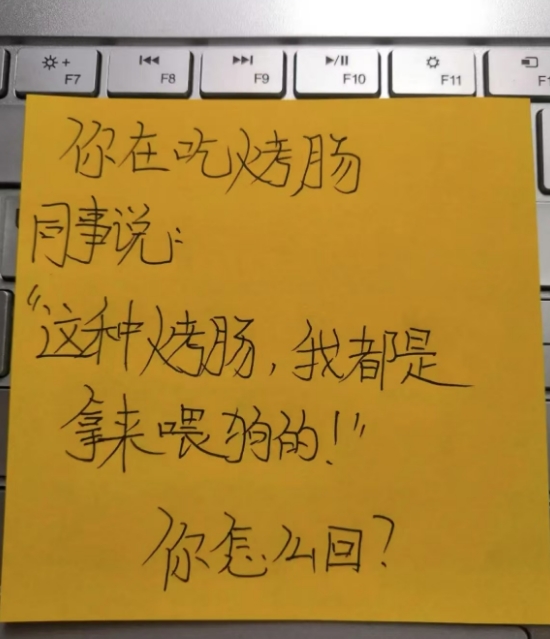 F7
F8
F9
F10
F11
你在吃烤肠
同事说:
“这种烤肠,我都是
拿来喂狗的!”
你怎么回?